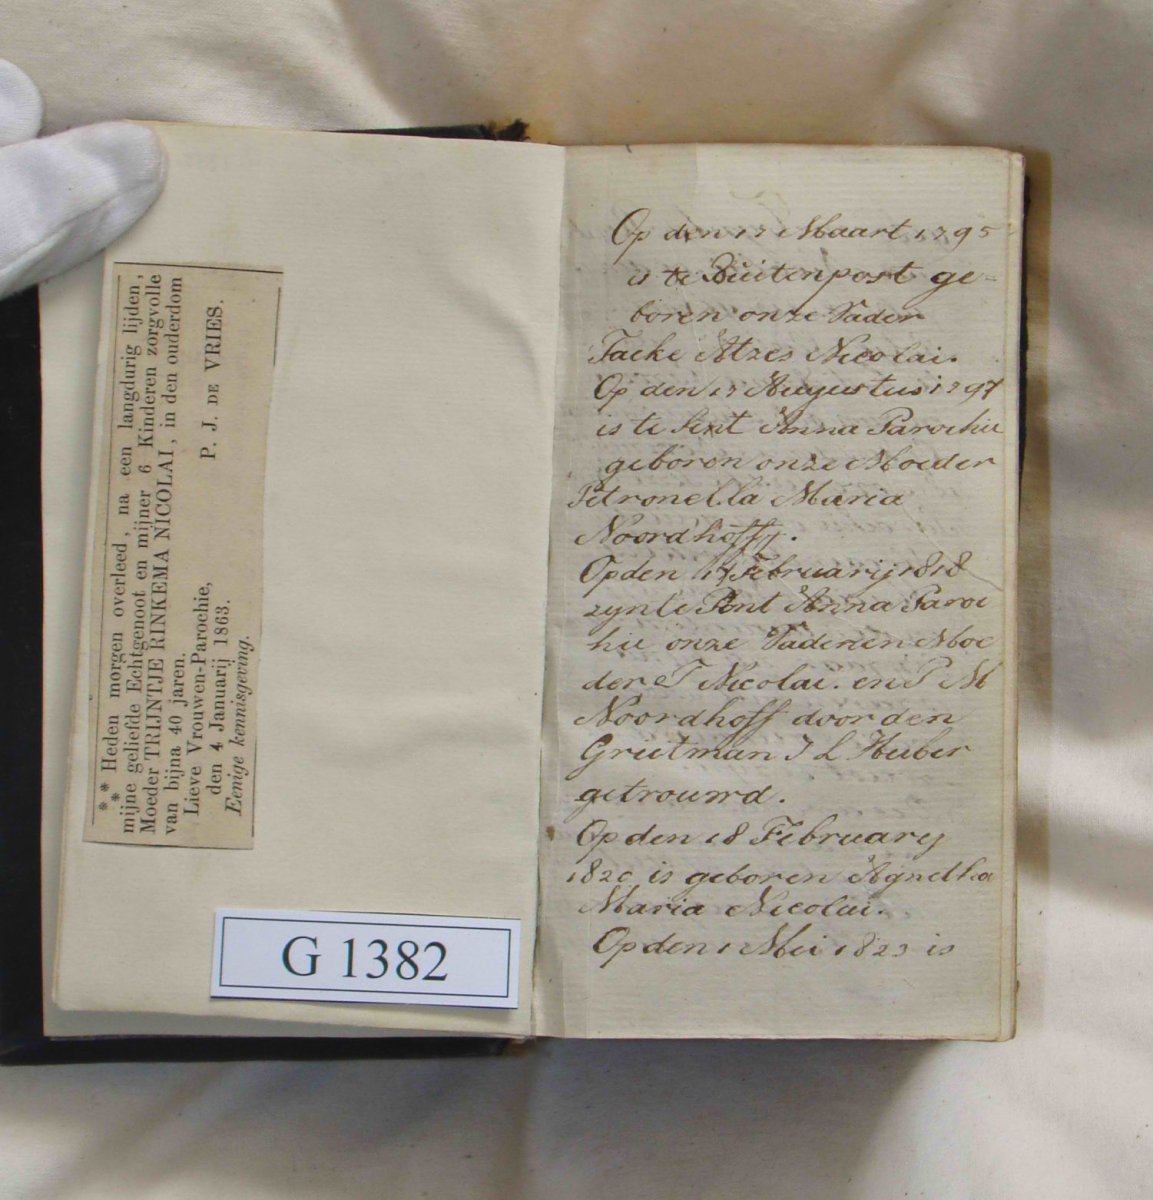 ** Heden morgen overleed, na een langdurig lijden,
mijne geliefde Echtgenoot en mijner 6 Kinderen zorgvolle
Moeder TRIJNTJE RINKEMA NICOLAI, in den ouderdom
van bijna 40 jaren.
Lieve Vrouwen-Parochie,
den 4 Januarij 1863. P. J. DE VRIES.
Eenige kennisgeving.
G 1382
Op den 17 Maart 1795
is te Buitenpost ge-
boren onze Vader
Tacke Atzes Nicolai.
Op den 17 Augustus 1797
is te Sint Anna Parochie
geboren onze Moeder
Petronella Maria
Noordhoff.
Op den 14 Februarij 1818
zyn te Sint Anna Paroc
hie onze Vader en Moe
der T Nicolai. en P M
Noordhoff door den
Grietman J L Huber
getrouwd.
Op den 18 Februarij
1820 is geboren Agnetha
Maria Nicolai.
Op den 1 Mei 1823 is